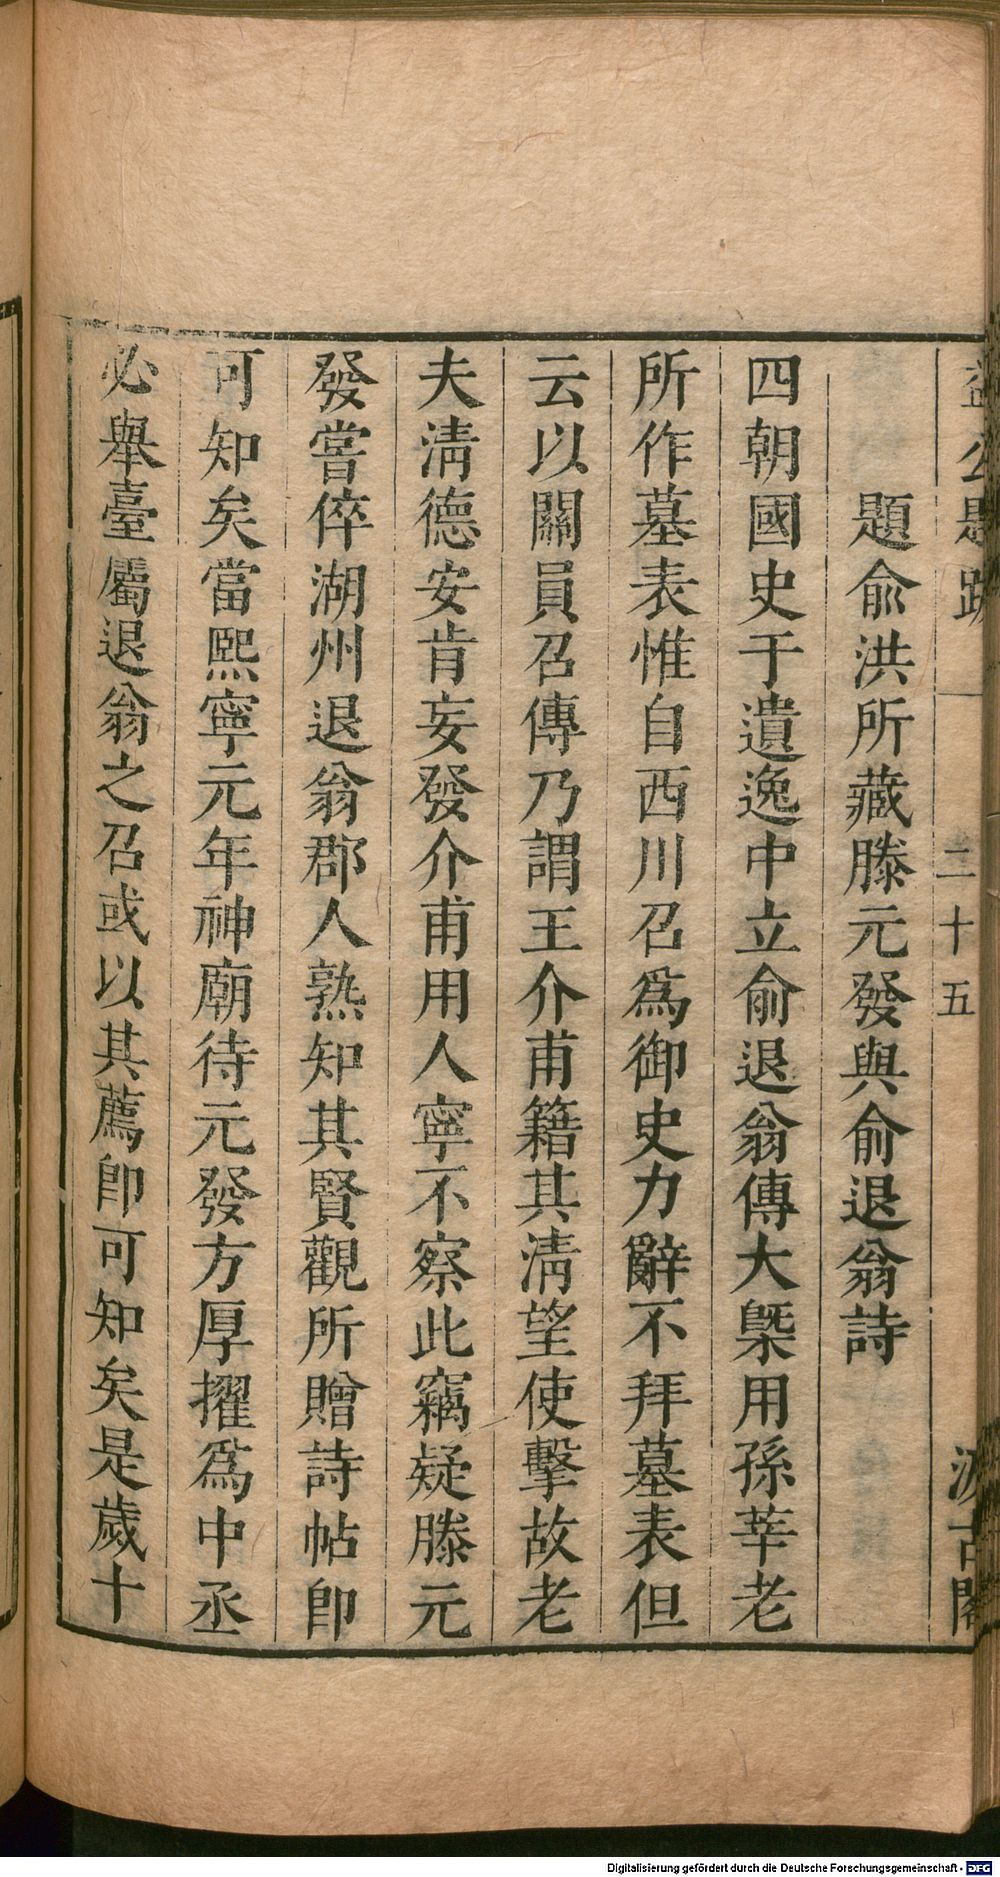 益公題跋 二十五 汲古閣
題兪洪所藏滕元發與兪退翁詩
四朝國史于遺逸中立兪退翁傳大槩用孫莘老
所作墓表惟自西川召爲御史力辭不拜墓表但
云以闕員召傳乃謂王介甫籍其淸望使擊故老
夫淸德安肯妄發介甫用人寧不察此竊疑滕元
發嘗倅湖州退翁郡人熟知其賢觀所贈詩帖卽
可知矣當熙寧元年神廟待元發方厚擢爲中丞
必舉臺屬退翁之召或以其薦卽可知矣是歲十
Digitalisierung gefördert durch die Deutsche Forschungsgemeinschaft - DFG